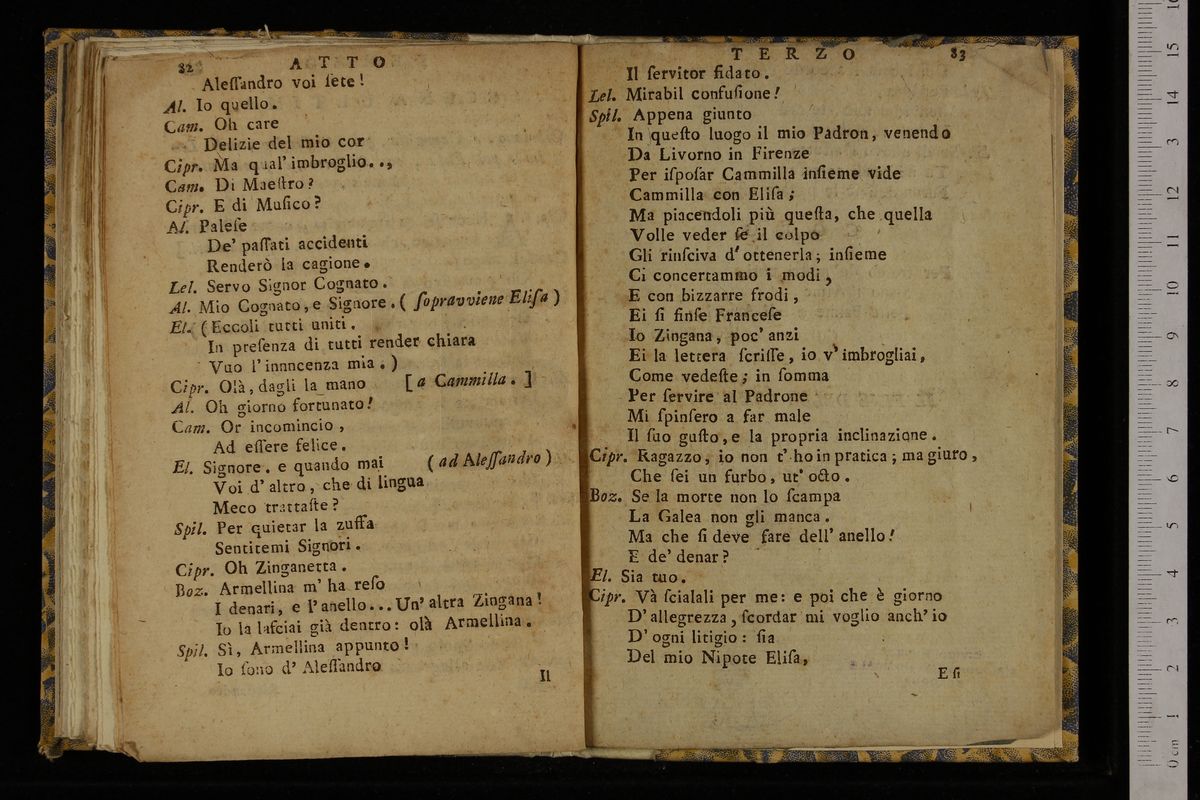 82 ATTO
Aleſſandro voi ſete!
Al. Io quello.
Cam. Oh care
Delizie del mio cor
Cipr. Ma qual' imbroglio..,
Cam. Di Maeſtro?
Cipr. E di Muſico?
Al. Paleſe
De' paſſati accidenti
Renderò la cagione.
Lel. Servo Signor Cognato.
Al. Mio Cognato, e Signore. (ſopravviene Eliſa)
El. (Eccoli tutti uniti.
In preſenza di tutti render chiara
Vuo l'innncenza mia.)
Cipr. Olà, dagli la mano [a Cammilla.]
Al. Oh giorno fortunato!
Cam. Or incomincio,
Ad eſſere felice.
El. Signore. e quando mai (ad Aleſſandro)
Voi d'altro, che di lingua
Meco trattaſte?
Spil. Per quietar la zuffa
Sentitemi Signori.
Cipr. Oh Zinganetta.
Boz. Armellina m' ha reſo
I denari, e l'anello... Un' altra Zingana!
Io la laſciai già dentro: olà Armellina.
Spil. Sì, Armellina appunto!
Io ſono d' Aleſſandro
Il
TERZO 83
Il ſervitor fidato.
Lel. Mirabil confuſione!
Spil. Appena giunto
In queſto luogo il mio Padron, venendo
Da Livorno in Firenze
Per iſpoſar Cammilla inſieme vide
Cammilla con Eliſa;
Ma piacendoli più queſta, che quella
Volle veder ſe il colpo
Gli rinſciva d' ottenerla; inſieme
Ci concertammo i modi,
E con bizzarre frodi,
Ei ſi finſe Franceſe
Io Zingana, poc' anzi
Ei la lettera ſcriſſe, io v' imbrogliai,
Come vedeſte; in ſomma
Per ſervire al Padrone
Mi ſpinſero a far male
Il ſuo guſto, e la propria inclinazione.
Cipr. Ragazzo, io non t' ho in pratica; ma giuro,
Che ſei un furbo, ut' octo.
Boz. Se la morte non lo ſcampa
La Galea non gli manca.
Ma che ſi deve fare dell' anello!
E de' denar?
El. Sia tuo.
Cipr. Và ſcialali per me: e poi che è giorno
D' allegrezza, ſcordar mi voglio anch' io
D' ogni litigio: ſia
Del mio Nipote Eliſa,
E ſi
0 cm 1 2 3 4 5 6 7 8 9 10 11 12 13 14 15